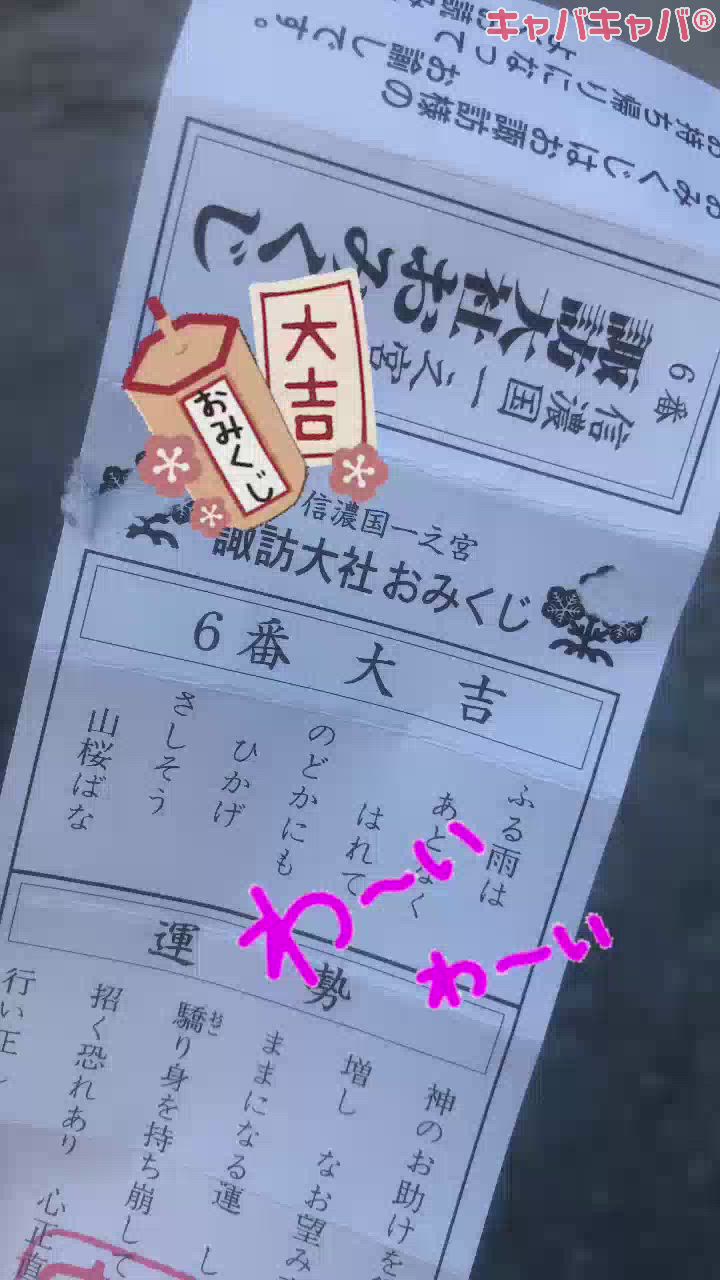 キャバキャバ®
おみくじはお諏訪様の
お諭しです。
6番
信濃国一之宮
諏訪大社おみくじ
大吉
おみくじ
信濃国一之宮
諏訪大社おみくじ
6番 大吉
ふる雨は
あとなく
はれて
のどかにも
ひかげ
さしそう
山桜ばな
わ〜い
わ〜い
運勢
神のお助けを
増し なお望み
ままになる運 し
驕り身を持ち崩して
おご
招く恐れあり 心正直
行い正し